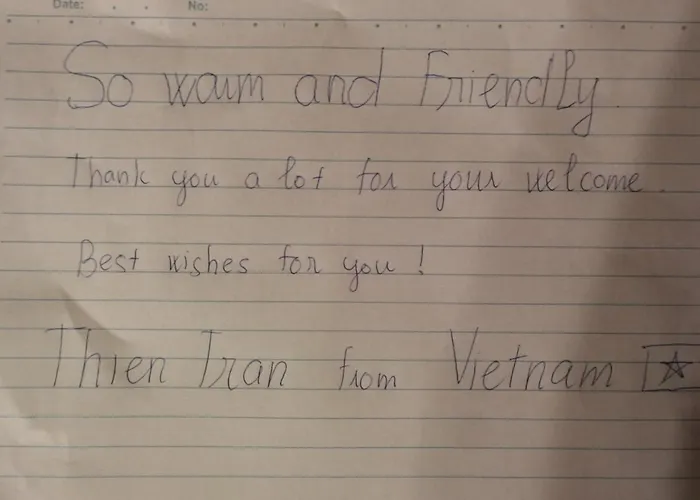 Date: No:
So warm and Friendly.
Thank you a lot for your welcome.
Best wishes for you !
Thien Tran from Vietnam